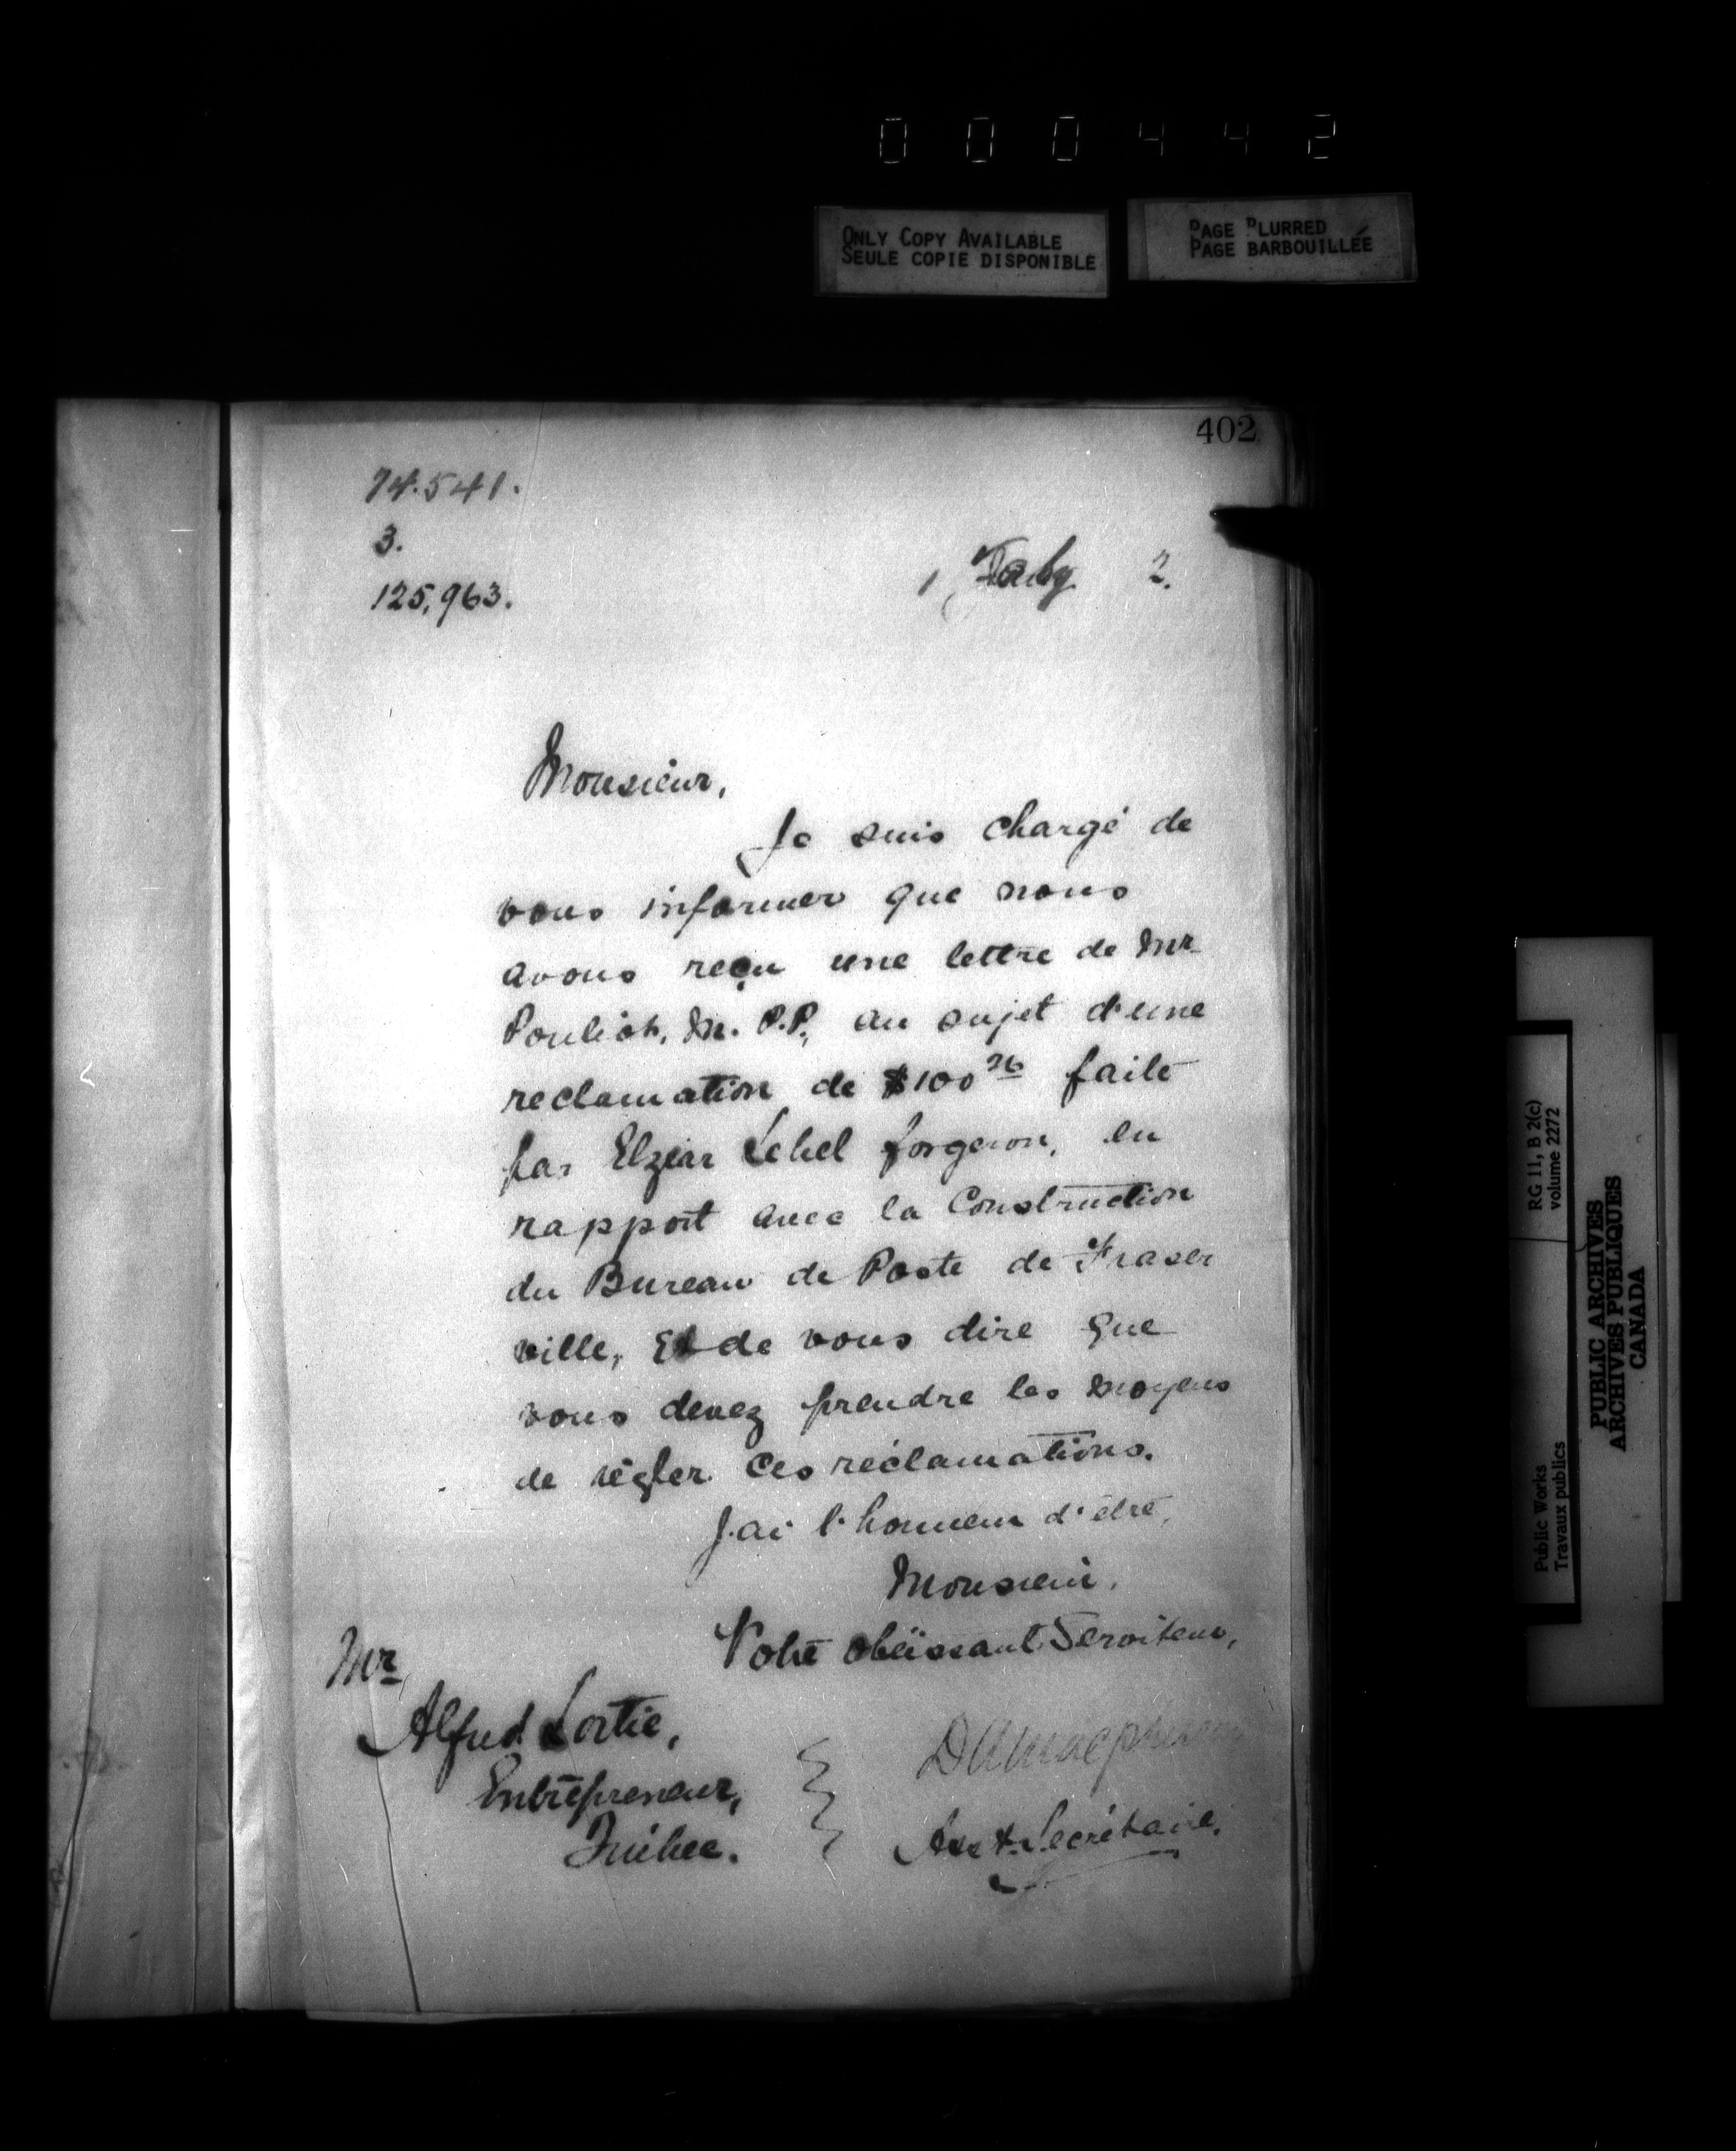 0 0 0 4 4 2
ONLY COPY AVAILABLE
SEULE COPIE DISPONIBLE
PAGE BLURRED
PAGE BARBOUILLÉE
402
74.541.
3.
125,963.
1 2.
Monsieur,
Je suis chargé de
vous informer que nous
avons reçu une lettre de Mr
Pouliot, M.P.P., au sujet d'une
reclamation de $100 26 faite
par Elzéar Lebel forgeron, en
rapport avec la Construction
du Bureau de Poste de Fraser
ville, Et de vous dire que
vous devez prendre les moyens
de régler ces réclamations.
J'ai l'honneur d'être,
Monsieur,
Votre obéissant Serviteur,
Mr
Alfred Lortie,
Entrepreneur,
Québec.
Asst. Secrétaire.
RG 11, B 2(c)
volume 2272
Public Works
Travaux publics
PUBLIC ARCHIVES
ARCHIVES PUBLIQUES
CANADA